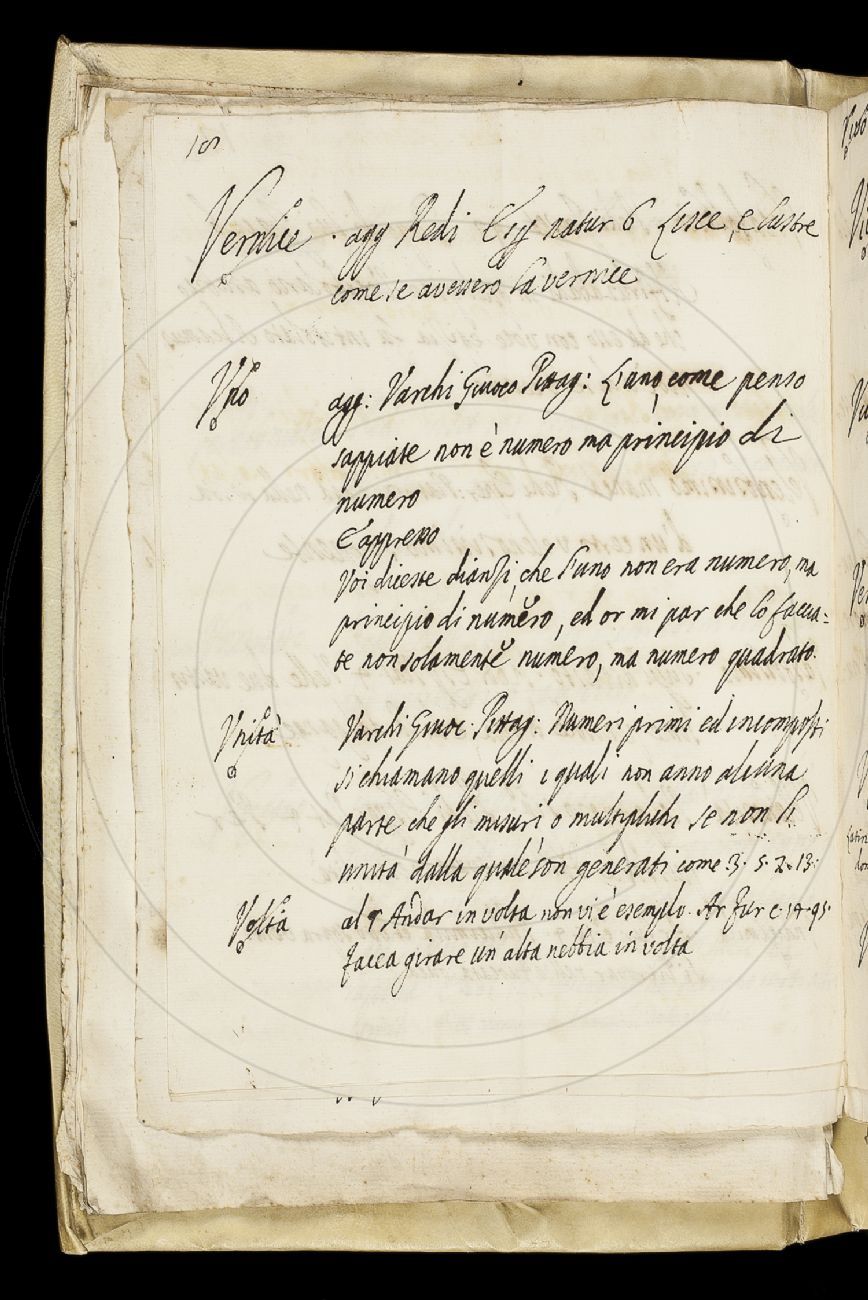 108
Vernice · agg Redi Esp natur 6 Lisce, e lustre
come se avessero la vernice
Vno agg: Varchi Giuoco Pittag: L'uno, come penso
sappiate non è numero ma principio di
numero
E appresso
Voi diceste dianzi, che l'uno non era numero, ma
principio di numero, ed or mi par che lo faccia=
te non solamente numero, ma numero quadrato.
Vnità Varchi Giuoc. Pittag: Numeri primi ed incomposti
si chiamano quelli i quali non anno alcuna
parte che gli misuri o multiplichi se non l'
unità dalla quale son generati come .3. 5. 2. 13.
Volta al § Andar in volta non vi è esempio. Ar Fur c. 14. 95.
Facea girare un' alta nebbia in volta